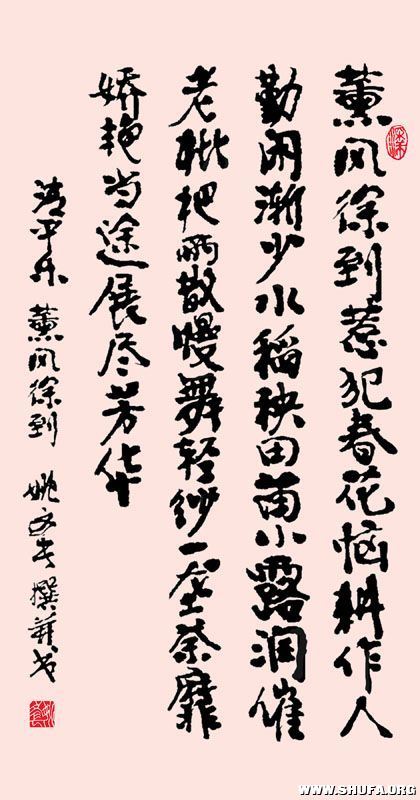 薰风徐到惹犯春花恼耕作人
勤闲渐少水稻秧田苗小露润催
老枇杷雨散慢舞轻纱一垄荼靡
娇艳当途展尽芳华
清平乐 薰风徐到 姚 撰并书
WWW.SHUFA.ORG